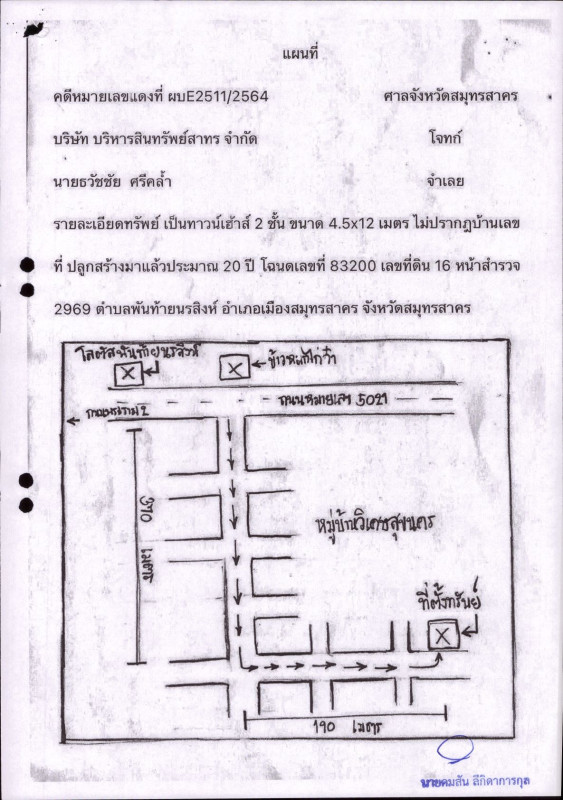 แผนที่
คดีหมายเลขแดงที่ ผบE2511/2564 ศาลจังหวัดสมุทรสาคร
บริษัท บริหารสินทรัพย์สาทร จำกัด โจทก์
นายธวัชชัย ศรีคล้ำ จำเลย
รายละเอียดทรัพย์ เป็นทาวน์เฮ้าส์ 2 ชั้น ขนาด 4.5x12 เมตร ไม่ปรากฎบ้านเลข
ที่ ปลูกสร้างมาแล้วประมาณ 20 ปี โฉนดเลขที่ 83200 เลขที่ดิน 16 หน้าสำรวจ
2969 ตำบลพันท้ายนรสิงห์ อำเภอเมืองสมุทรสาคร จังหวัดสมุทรสาคร
โลตัสพันท้ายนรสิงห์
ถนนหมายเลข 5021
ถนนพระราม 2
370 เมตร
หมู่บ้านวิเศษสุขนคร
ที่ตั้งทรัพย์
190 เมตร
นายคมสัน ลีกิดาการกุล